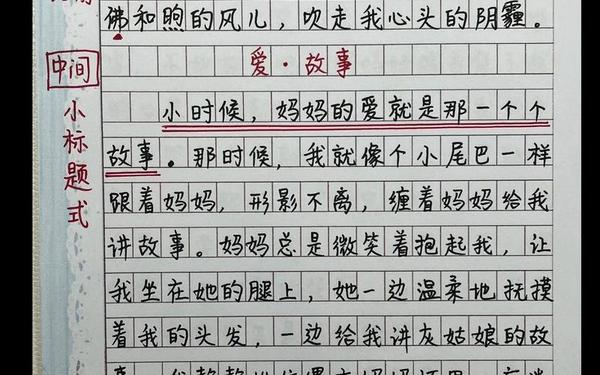 佛和煦的风儿，吹走我心头的阴霾。
爱·故事
中间
小标题式
小时候，妈妈的爱就是那一个个
故事。那时候，我就像个小尾巴一样
跟着妈妈，形影不离，缠着妈妈给我
讲故事。妈妈总是微笑着抱起我，让
我坐在她的腿上，她一边温柔地抚摸
着我的头发，一边给我讲灰姑娘的故